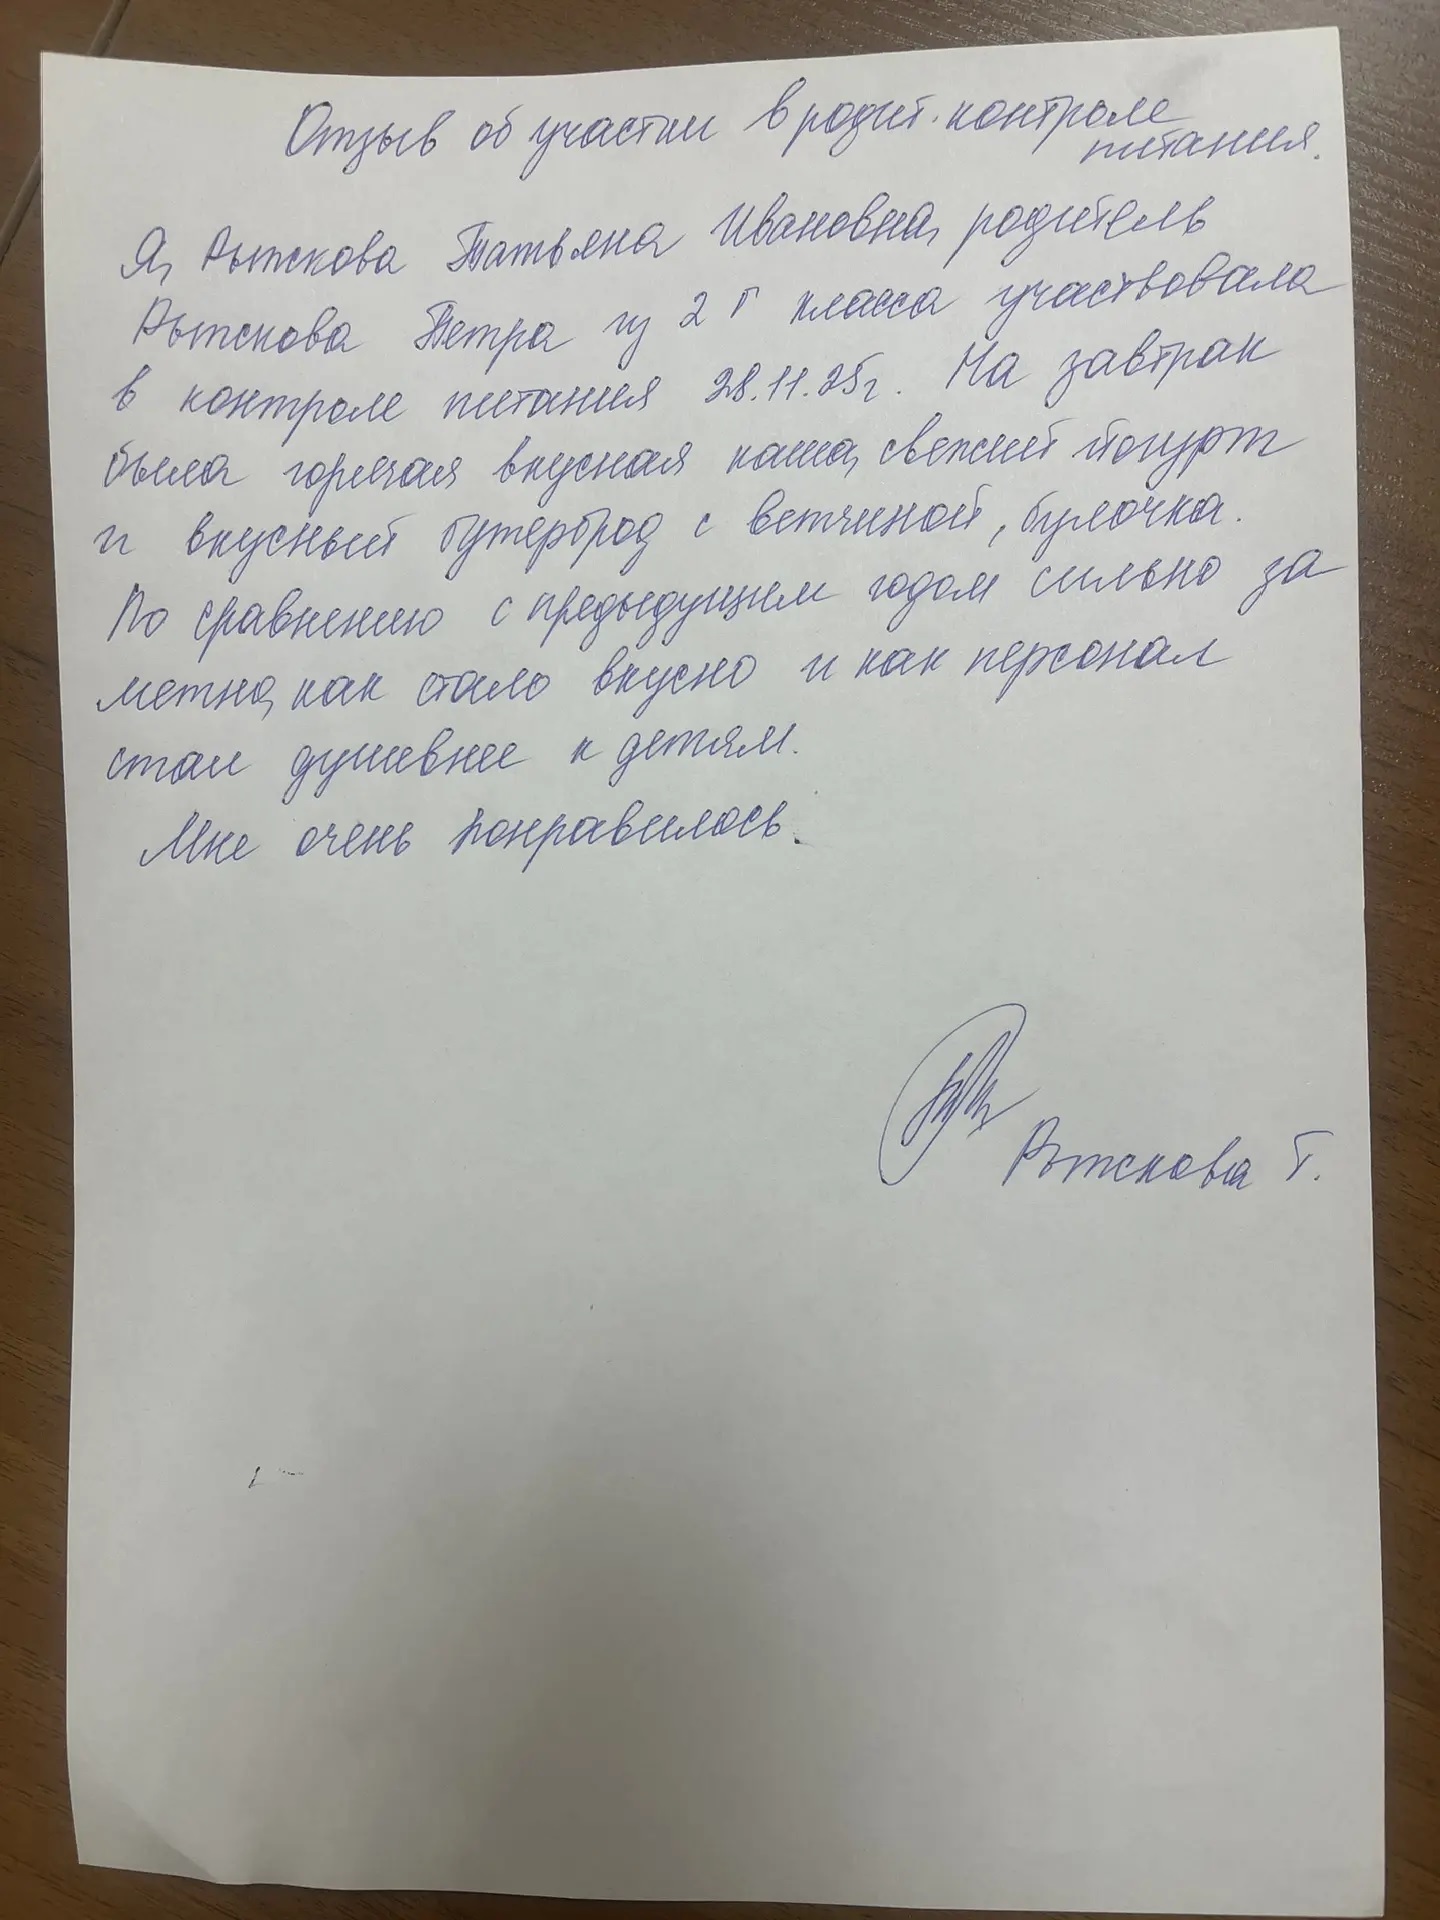 Отзыв об участии в родит. контроле
питания.
Я, Рыжкова Татьяна Ивановна, родитель
Рыжкова Петра из 2 Г класса участвовала
в контроле питания 28.11.25г. На завтрак
была горячая вкусная каша, свежий йогурт
и вкусный бутерброд с ветчиной, булочка.
По сравнению с предыдущем годом сильно за
метно, как стало вкусно и как персонал
стал душевнее к детям.
Мне очень понравилось.
Рыжкова Т.